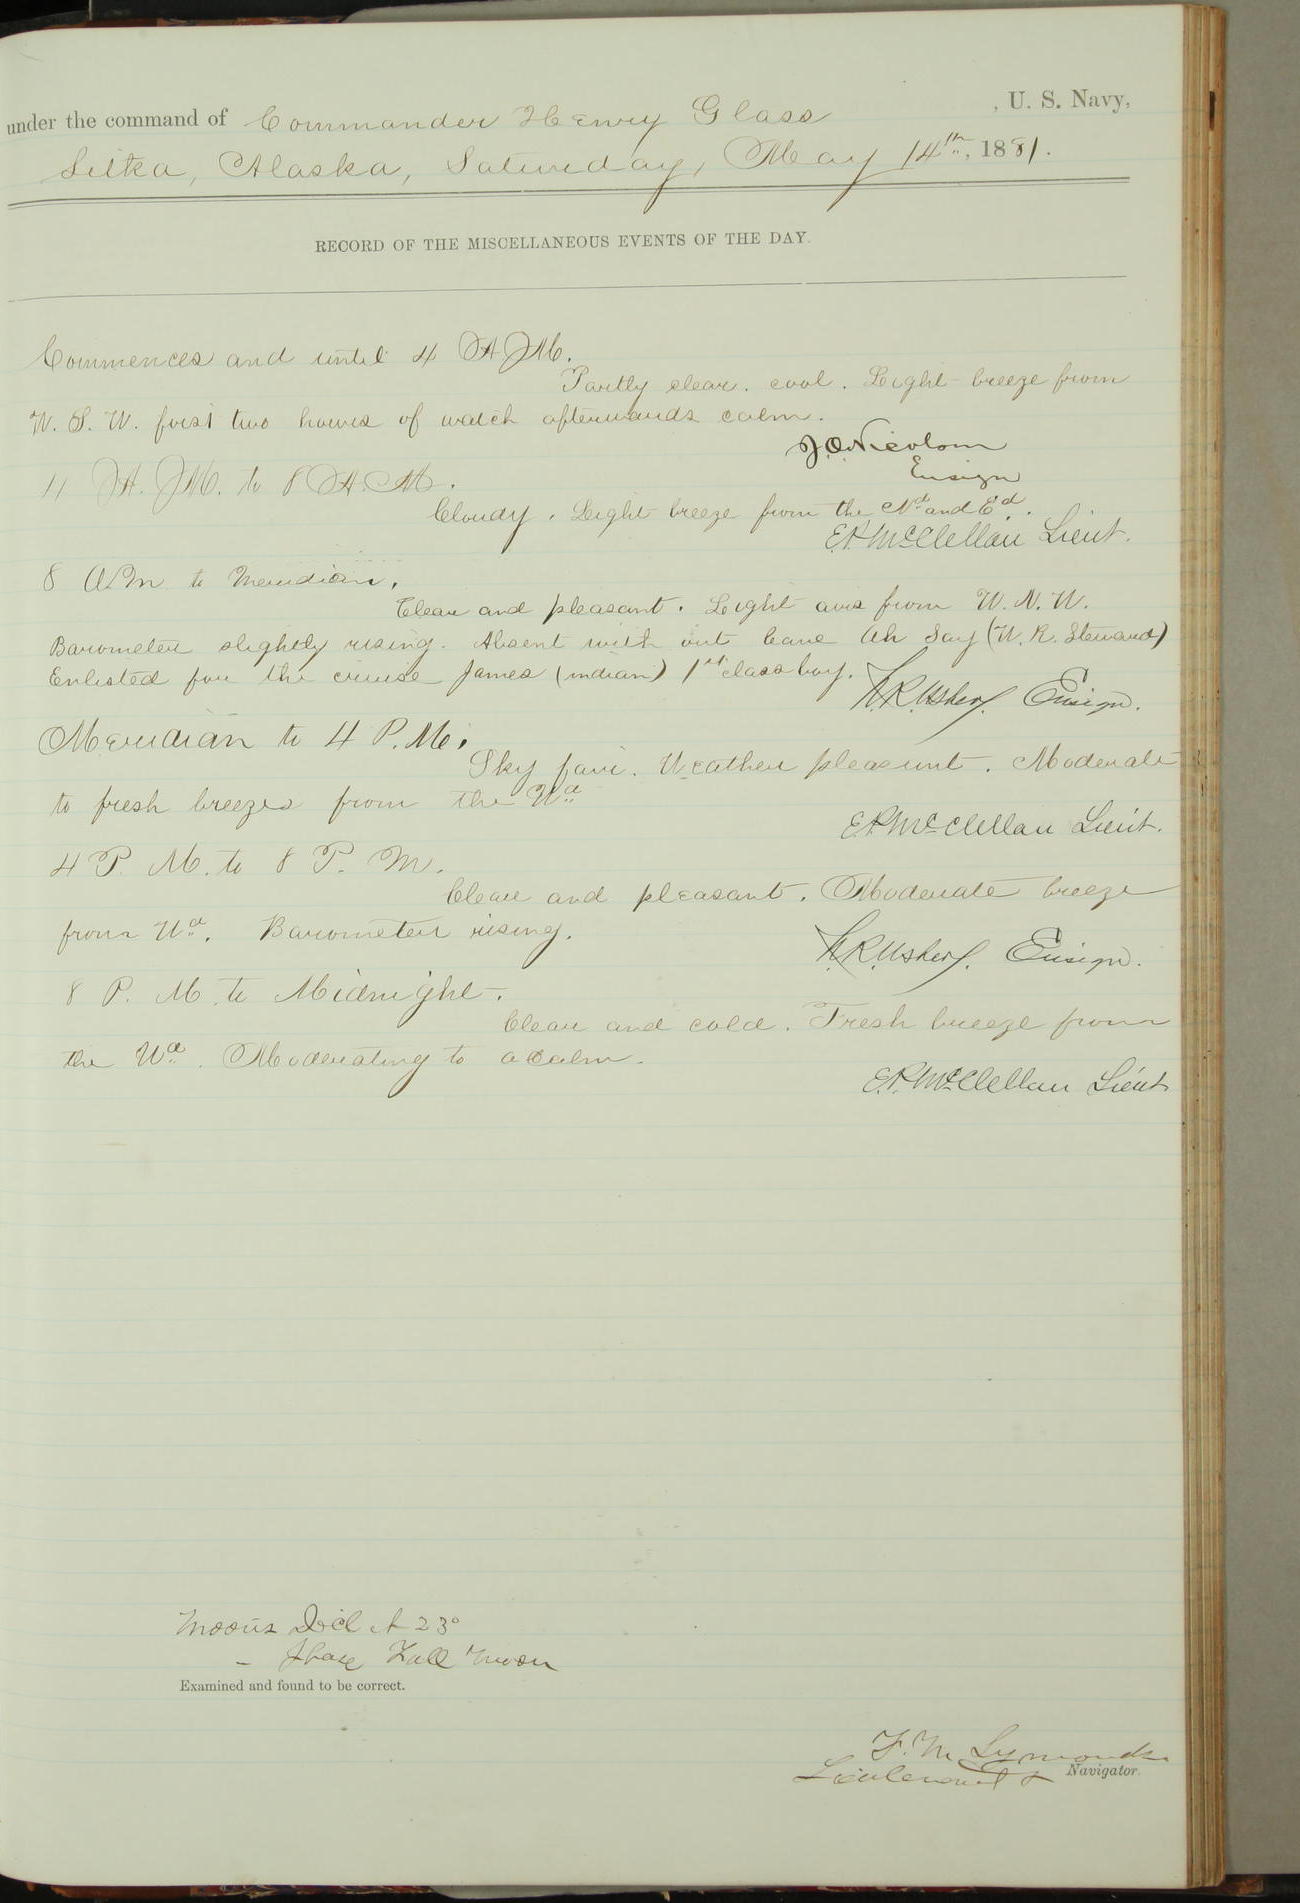 under the command of Commander Henry Glass , U. S. Navy,
Sitka, Alaska, Saturday, May 14th, 1881.
RECORD OF THE MISCELLANEOUS EVENTS OF THE DAY.
Commences and until 4 A.M.
Partly clear. cool. Light breeze from
W. S. W. first two hours of watch afterwards calm.
J.O. Nicolson
Ensign
4 A.M. to 8 A.M.
Cloudy. Light breeze from the Nd and Ed.
E.P. McClellan Lieut.
8 A.M to Meridian.
Clear and pleasant. Light airs from W. N. W.
Barometer slightly rising. Absent with out leave Ah Say (W. R. Steward)
Enlisted for the cruise James (indian) 1st class boy.
N.R. Usher. Ensign.
Meridian to 4 P.M.
Sky fair. Weather pleasant. Moderate
to fresh breezes from the Wd
E.P. McClellan Lieut.
4 P. M. to 8 P. M.
Clear and pleasant. Moderate breeze
from Wd. Barometer rising.
N.R. Usher. Ensign.
8 P. M to Midnight.
Clear and cold. Fresh breeze from
the Wd. Moderating to a calm.
E.P. McClellan Lieut
Moons Decl 23°
– Phase Full Moon
Examined and found to be correct.
F. M. Symonds
Lieutenant & Navigator.